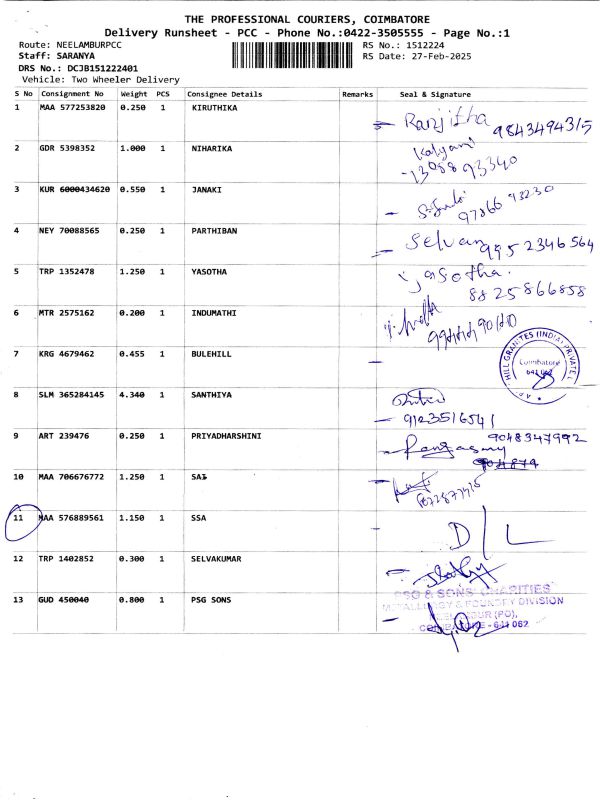 THE PROFESSIONAL COURIERS, COIMBATORE
Delivery Runsheet - PCC - Phone No.:0422-3505555 - Page No.:1
Route: NEELAMBURPCC RS No.: 1512224
Staff: SARANYA RS Date: 27-Feb-2025
DRS No.: DCJB151222401
Vehicle: Two Wheeler Delivery
S No Consignment No Weight PCS Consignee Details Remarks Seal & Signature
1 MAA 577253820 0.250 1 KIRUTHIKA Ranjitha 9843494315
2 GDR 5398352 1.000 1 NIHARIKA Kalyani
3 KUR 6000434620 0.550 1 JANAKI 97866 93230
4 NEY 70088565 0.250 1 PARTHIBAN Selvan 9952346564
5 TRP 1352478 1.250 1 YASOTHA yasotha. 8825866858
6 MTR 2575162 0.200 1 INDUMATHI
7 KRG 4679462 0.455 1 BULEHILL HILL GRANITES (INDIA) PRIVATE Coimbatore
8 SLM 365284145 4.340 1 SANTHIYA 9123516541
9 ART 239476 0.250 1 PRIYADHARSHINI Rangasamy 9048347992
10 MAA 706676772 1.250 1 SAI
11 MAA 576889561 1.150 1 SSA D/L
12 TRP 1402852 0.300 1 SELVAKUMAR
13 GUD 450040 0.800 1 PSG SONS
PSG & SONS' CHARITIES
METALLURGY & FOUNDRY DIVISION
COIMBATORE - 641 062